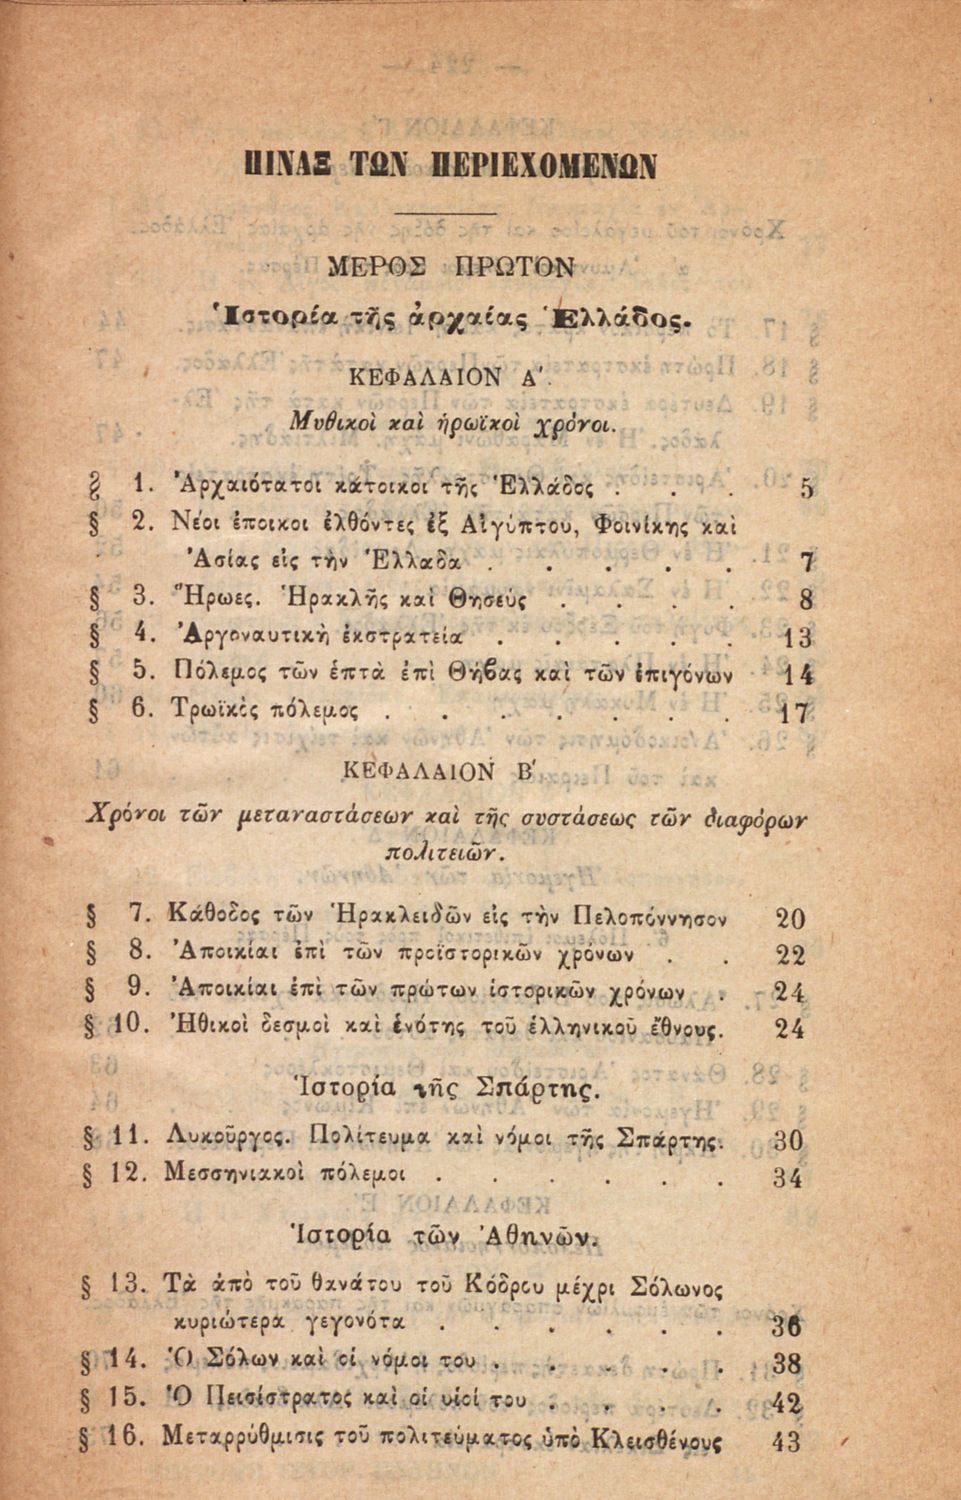 ΠΙΝΑΞ ΤΩΝ ΠΕΡΙΕΧΟΜΕΝΩΝ
ΜΕΡΟΣ ΠΡΩΤΟΝ
Ἱστορία τῆς ἀρχαίας Ἑλλάδος.
ΚΕΦΑΛΑΙΟΝ Α΄.
Μυθικοὶ καὶ ἡρωϊκοὶ χρόνοι.
§ 1. Ἀρχαιότατοι κάτοικοι τῆς Ἑλλάδος . . . 5
§ 2. Νέοι ἐποικοι ἐλθόντες ἐξ Αἰγύπτου, Φοινίκης καὶ
Ἀσίας εἰς τὴν Ἑλλαδα . . . . . 7
§ 3. Ἥρωες. Ἡρακλῆς καὶ Θησεύς . . . . 8
§ 4. Ἀργοναυτικὴ ἐκστρατεία . . . . . 13
§ 5. Πόλεμος τῶν ἑπτὰ ἐπὶ Θήβας καὶ τῶν ἐπιγόνων 14
§ 6. Τρωϊκὸς πόλεμος . . . . . . . 17
ΚΕΦΑΛΑΙΟΝ Β΄
Χρόνοι τῶν μεταναστάσεων καὶ τῆς συστάσεως τῶν διαφόρων
πολιτειῶν.
§ 7. Κάθοδος τῶν Ἡρακλειδῶν εἰς τὴν Πελοπόννησον 20
§ 8. Ἀποικίαι ἐπὶ τῶν προϊστορικῶν χρόνων . . 22
§ 9. Ἀποικίαι ἐπὶ τῶν πρώτων ἱστορικῶν χρόνων . 24
§ 10. Ἠθικοὶ δεσμοὶ καὶ ἑνότης τοῦ ἑλληνικοῦ ἔθνους. 24
Ἱστορία τῆς Σπάρτης.
§ 11. Λυκοῦργος. Πολίτευμα καὶ νόμοι τῆς Σπάρτης. 30
§ 12. Μεσσηνιακοὶ πόλεμοι . . . . . . 34
Ἱστορία τῶν Ἀθηνῶν.
§ 13. Τὰ ἀπὸ τοῦ θανάτου τοῦ Κόδρου μέχρι Σόλωνος
κυριώτερα γεγονότα . . . . . . 36
§ 14. Ὁ Σόλων καὶ οἱ νόμοι του . . . . . 38
§ 15. Ὁ Πεισίστρατος καὶ οἱ υἱοί του . . . . 42
§ 16. Μεταρρύθμισις τοῦ πολιτεύματος ὑπὸ Κλεισθένους 43